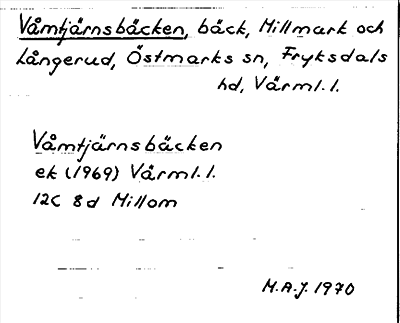 Våmtjärnsbäcken, bäck, Millmark och
Långerud, Östmarks sn, Fryksdals
hd, Värml. l.
Våmtjärnsbäcken
ek (1969) Värml. l.
12C 8d Millom
M.A.J. 1970